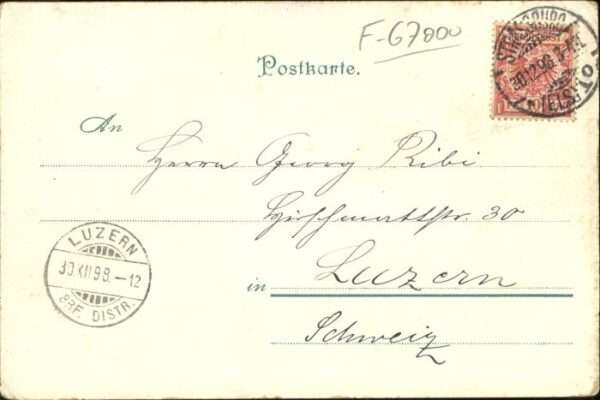 F-67000
STRASSBURG
30.12.98
(ELS)
Postkarte.
An
Herrn Georg Ribi
Hirschmattstr. 30
LUZERN
30.XII.98.-12
BRF. DISTR.
in Luzern
Schweiz